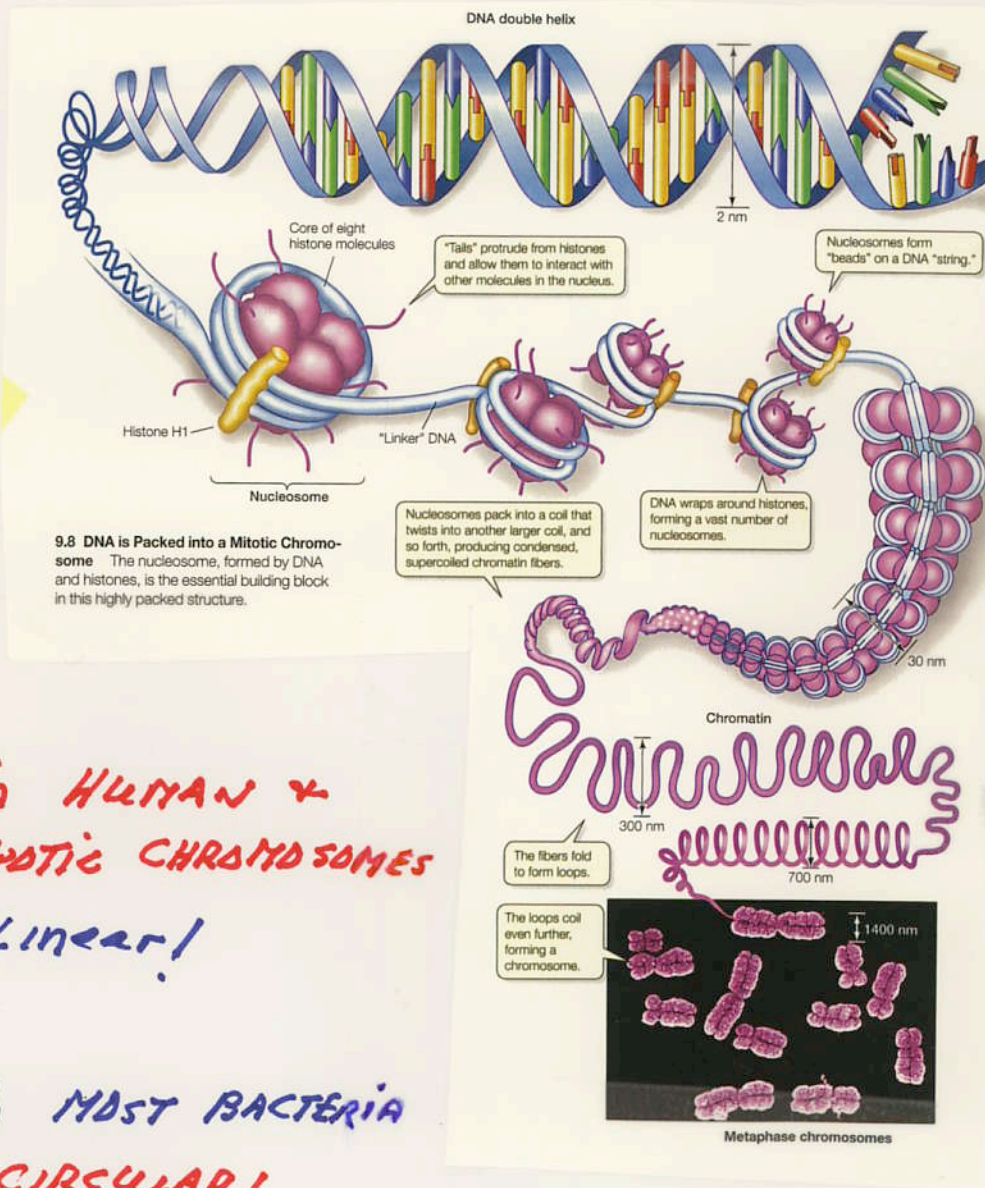 DNA double helix
2 nm
Core of eight
histone molecules
"Tails" protrude from histones
and allow them to interact with
other molecules in the nucleus.
Nucleosomes form
"beads" on a DNA "string."
Histone H1
"Linker" DNA
Nucleosome
Nucleosomes pack into a coil that
twists into another larger coil, and
so forth, producing condensed,
supercoiled chromatin fibers.
DNA wraps around histones,
forming a vast number of
nucleosomes.
9.8 DNA is Packed into a Mitotic Chromo-
some The nucleosome, formed by DNA
and histones, is the essential building block
in this highly packed structure.
30 nm
Chromatin
300 nm
The fibers fold
to form loops.
700 nm
The loops coil
even further,
forming a
chromosome.
1400 nm
Metaphase chromosomes
HUMAN &
OTIC CHROMOSOMES
Linear!
MOST BACTERIA
CIRCULAR!